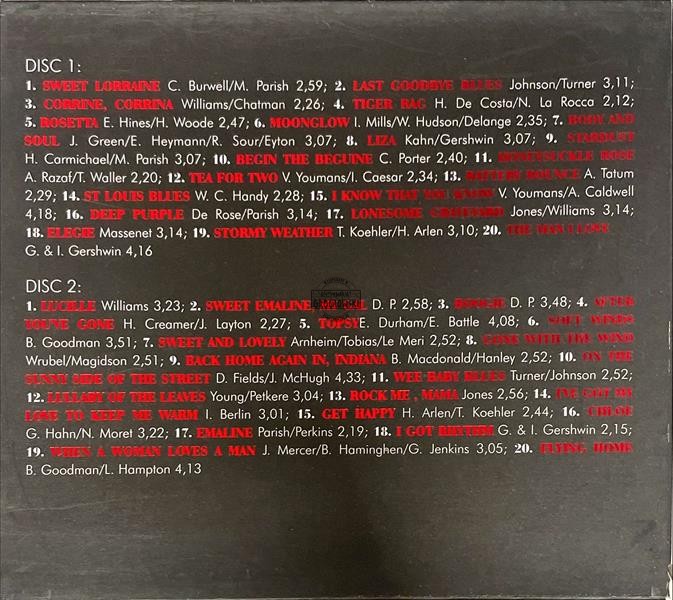 DISC 1:
1. SWEET LORRAINE C. Burwell/M. Parish 2,59; 2. LAST GOODBYE BLUES Johnson/Turner 3,11;
3. CORRINE, CORRINA Williams/Chatman 2,26; 4. TIGER RAG H. De Costa/N. La Rocca 2,12;
5. ROSETTA E. Hines/H. Woode 2,47; 6. MOONGLOW I. Mills/W. Hudson/Delange 2,35; 7. BODY AND
SOUL J. Green/E. Heymann/R. Sour/Eyton 3,07; 8. LIZA Kahn/Gershwin 3,07; 9. STARDUST
H. Carmichael/M. Parish 3,07; 10. BEGIN THE BEGUINE C. Porter 2,40; 11. HONEYSUCKLE ROSE
A. Razaf/T. Waller 2,20; 12. TEA FOR TWO V. Youmans/I. Caesar 2,34; 13. BATTERY BOUNCE A. Tatum
2,29; 14. ST LOUIS BLUES W. C. Handy 2,28; 15. I KNOW THAT YOU KNOW V. Youmans/A. Caldwell
4,18; 16. DEEP PURPLE De Rose/Parish 3,14; 17. LONESOME GRAVEYARD Jones/Williams 3,14;
18. ELEGIE Massenet 3,14; 19. STORMY WEATHER T. Koehler/H. Arlen 3,10; 20. THE MAN I LOVE
G. & I. Gershwin 4,16
DISC 2:
1. LUCILLE Williams 3,23; 2. SWEET EMALINE, MY GAL D. P. 2,58; 3. BOOGIE D. P. 3,48; 4. AFTER
YOU'VE GONE H. Creamer/J. Layton 2,27; 5. TOPSY E. Durham/E. Battle 4,08; 6. SOFT WINDS
B. Goodman 3,51; 7. SWEET AND LOVELY Arnheim/Tobias/Le Meri 2,52; 8. GONE WITH THE WIND
Wrubel/Magidson 2,51; 9. BACK HOME AGAIN IN, INDIANA B. Macdonald/Hanley 2,52; 10. ON THE
SUNNY SIDE OF THE STREET D. Fields/J. McHugh 4,33; 11. WEE-BABY BLUES Turner/Johnson 2,52;
12. LULLABY OF THE LEAVES Young/Petkere 3,04; 13. ROCK ME, MAMA Jones 2,56; 14. I'VE GOT MY
LOVE TO KEEP ME WARM I. Berlin 3,01; 15. GET HAPPY H. Arlen/T. Koehler 2,44; 16. CHLOE
G. Hahn/N. Moret 3,22; 17. EMALINE Parish/Perkins 2,19; 18. I GOT RHYTHM G. & I. Gershwin 2,15;
19. WHEN A WOMAN LOVES A MAN J. Mercer/B. Haminghen/G. Jenkins 3,05; 20. FLYING HOME
B. Goodman/L. Hampton 4,13